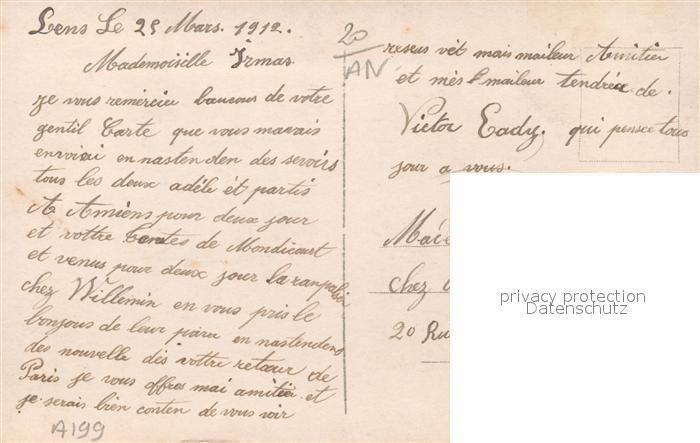 Lens Le 25 Mars. 1912.
Mademoiselle Irmas
je vous remércieu baucous de votre
gentil Carte que vous mavais
envoiai en nastenden des sevoirs
tous les deux adéle ét partis
A Amiens pour deux jour
et vottre de Mondicourt
et venus pour deux jour la
chez Willemin en vous pris le
bonjous de leur paru en nastendens
des nouvelle dés vottre retour de
Paris je vous offres mai amitiér et
je serais bien conten de vous voir
A199
20
AN
reseus vét mais mailleur Amitier
et més l maileur tendréx de.
Victor Eady, qui pensee tous
jour a vous.
Ma
chez
20 Ru
privacy protection
Datenschutz